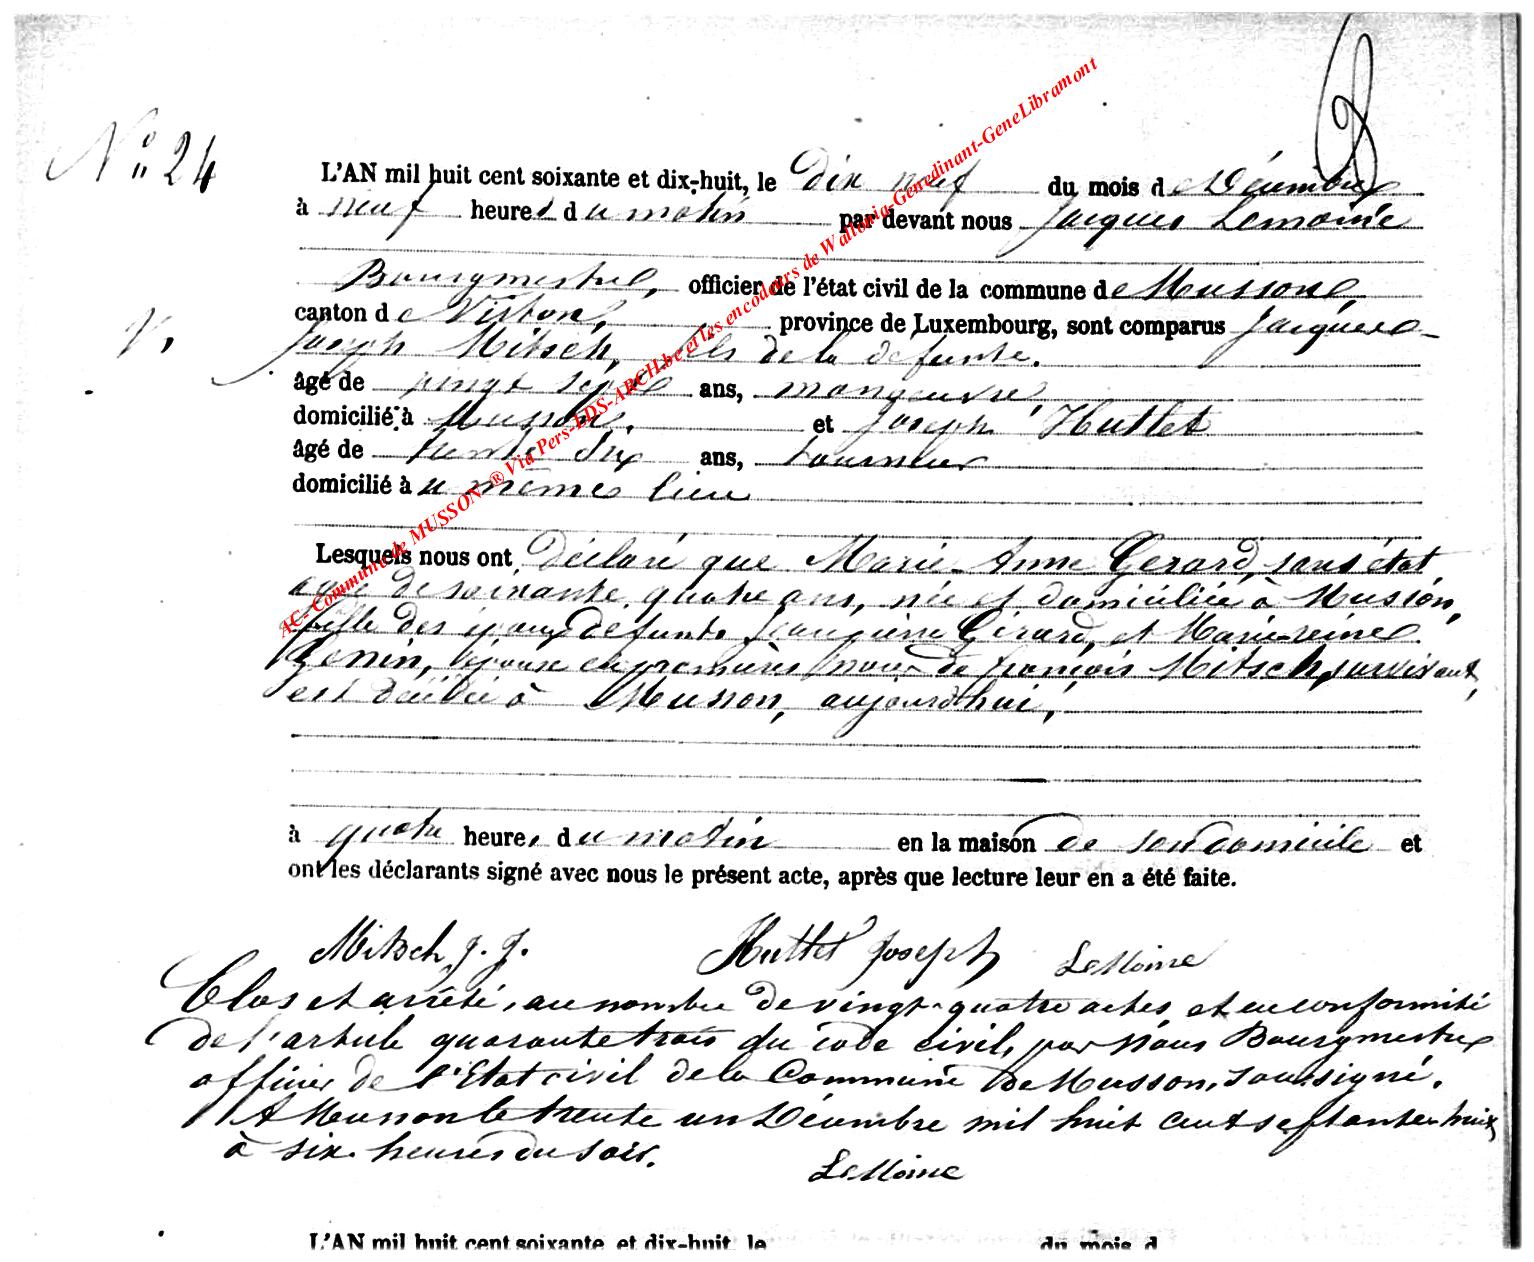 N° 24
L'AN mil huit cent soixante et dix-huit, le dix neuf du mois de Décembre
à neuf heures du matin par devant nous Jacques Lemoine
Bourgmestre, officier de l'état civil de la commune de Musson,
canton de Virton, province de Luxembourg, sont comparus Jacques-
Joseph Mitsch, fils de la défunte.
âgé de vingt sept ans, manoeuvre,
domicilié à Musson. et Joseph Huttet
âgé de trente six ans, tourneur
domicilié au même lieu
Lesquels nous ont déclaré que Marie-Anne Gerard, sans état
agée de soixante quatre ans, née et domiciliée à Musson,
fille des époux défunts Jean pierre Gérard, et Marie-reine
Genin, épouse en premières noces de françois Mitsch, survivant,
est décédée à Musson, aujourd'hui,
à quatre heures du matin en la maison de son domicile et
ont les déclarants signé avec nous le présent acte, après que lecture leur en a été faite.
Mitsch, J. J. Huttet Joseph LeMoine
Clos et arrêté, au nombre de vingt-quatre actes, et en conformité
de l'article quarante trois du code civil, par Nous Bourgmestre
officier de l'Etat civil de la Commune de Musson, soussigné.
A Musson le trente un Décembre mil huit cent septante-huit,
à six heures du soir.
LeMoine
L'AN mil huit cent soixante et dix-huit, le du mois d
AC- Commune de MUSSON ® Via Pers-LDS-ARCH.be et les encodeurs de Wallonia-Genedinant-GeneLibramont